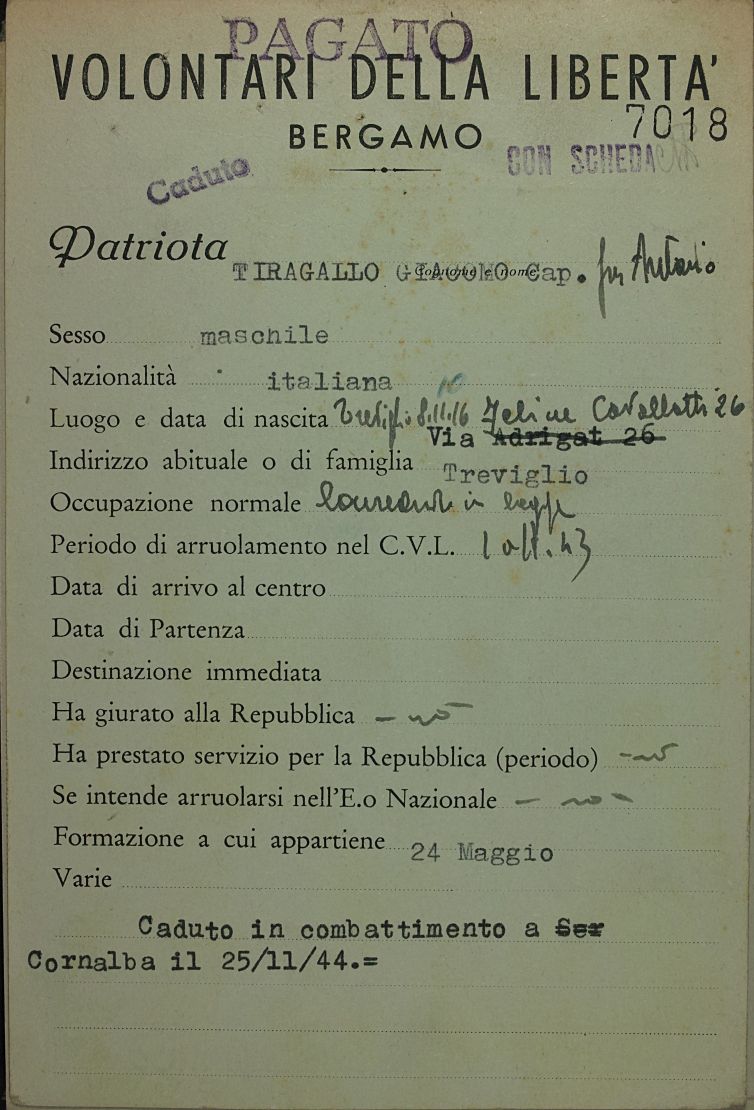 PAGATO
VOLONTARI DELLA LIBERTA'
BERGAMO
7018
CON SCHEDA
Caduto
Patriota TIRAGALLO GIACOMO Cap. fu Antonio
Cognome e nome
Sesso maschile
Nazionalità italiana
Luogo e data di nascita Treviglio 8.11.16 Felice Cavallotti 26
Via Adrigat 26
Indirizzo abituale o di famiglia Treviglio
Occupazione normale laureando in legge
Periodo di arruolamento nel C.V.L. 1 ott. 43
Data di arrivo al centro
Data di Partenza
Destinazione immediata
Ha giurato alla Repubblica - no
Ha prestato servizio per la Repubblica (periodo) - no
Se intende arruolarsi nell'E.o Nazionale - no -
Formazione a cui appartiene 24 Maggio
Varie
Caduto in combattimento a Ser
Cornalba il 25/11/44.=